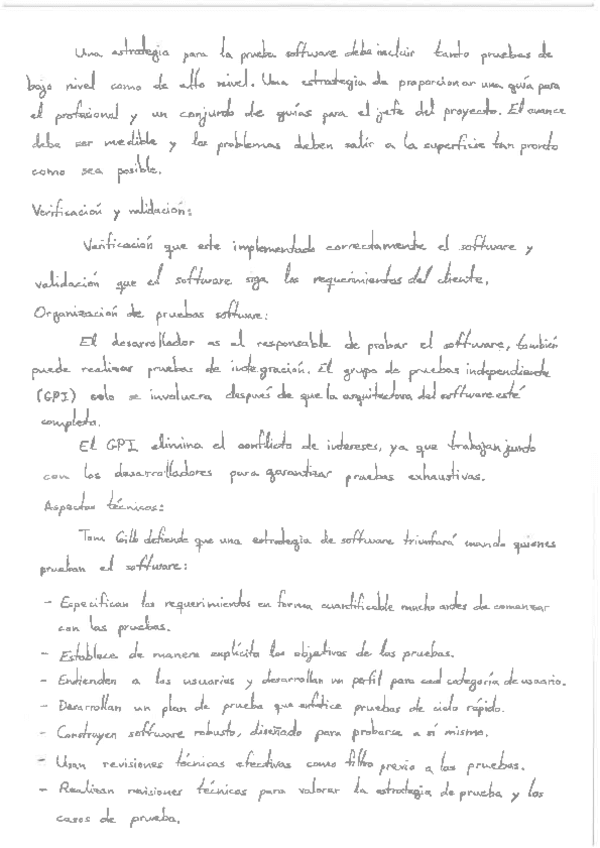 Una estrategia para la prueba software debe incluir tanto pruebas de
bajo nivel como de alto nivel. Una estrategia de proporcionar una guía para
el profesional y un conjundo de guías para el jefe del proyecto. El avance
debe ser medible y los problemas deben salir a la superficie tan pronto
como sea posible.
Verificación y validación:
Verificación que este implementado correctamente el software y
validación que el software siga los requerimientos del cliente.
Organización de pruebas software:
El desarrollador es el responsable de probar el software, también
puede realizar pruebas de integración. El grupo de pruebas independiente
(GPI) solo se involucra después de que la arquitectura del software esté
completa.
El GPI elimina el conflicto de intereses, ya que trabajan jundo
con los desarrolladores para garantizar pruebas exhaustivas.
Aspectos técnicos:
Tom Gilb defiende que una estrategia de software triunfará cuando quienes
prueban el software:
- Especifican los requerimientos en forma cuantificable mucho antes de comenzar
con las pruebas.
- Establece de manera explícita los objetivos de las pruebas.
- Endienden a los usuarios y desarrollan un perfil para cad categoría de usuario.
- Desarrollan un plan de prueba que enfatice pruebas de ciclo rápido.
- Construyen software robusto, diseñado para probarse a sí mismo.
- Usan revisiones técnicas efectivas como filtro previo a las pruebas.
- Realizan revisiones técnicas para valorar la estrategia de prueba y los
casos de prueba.